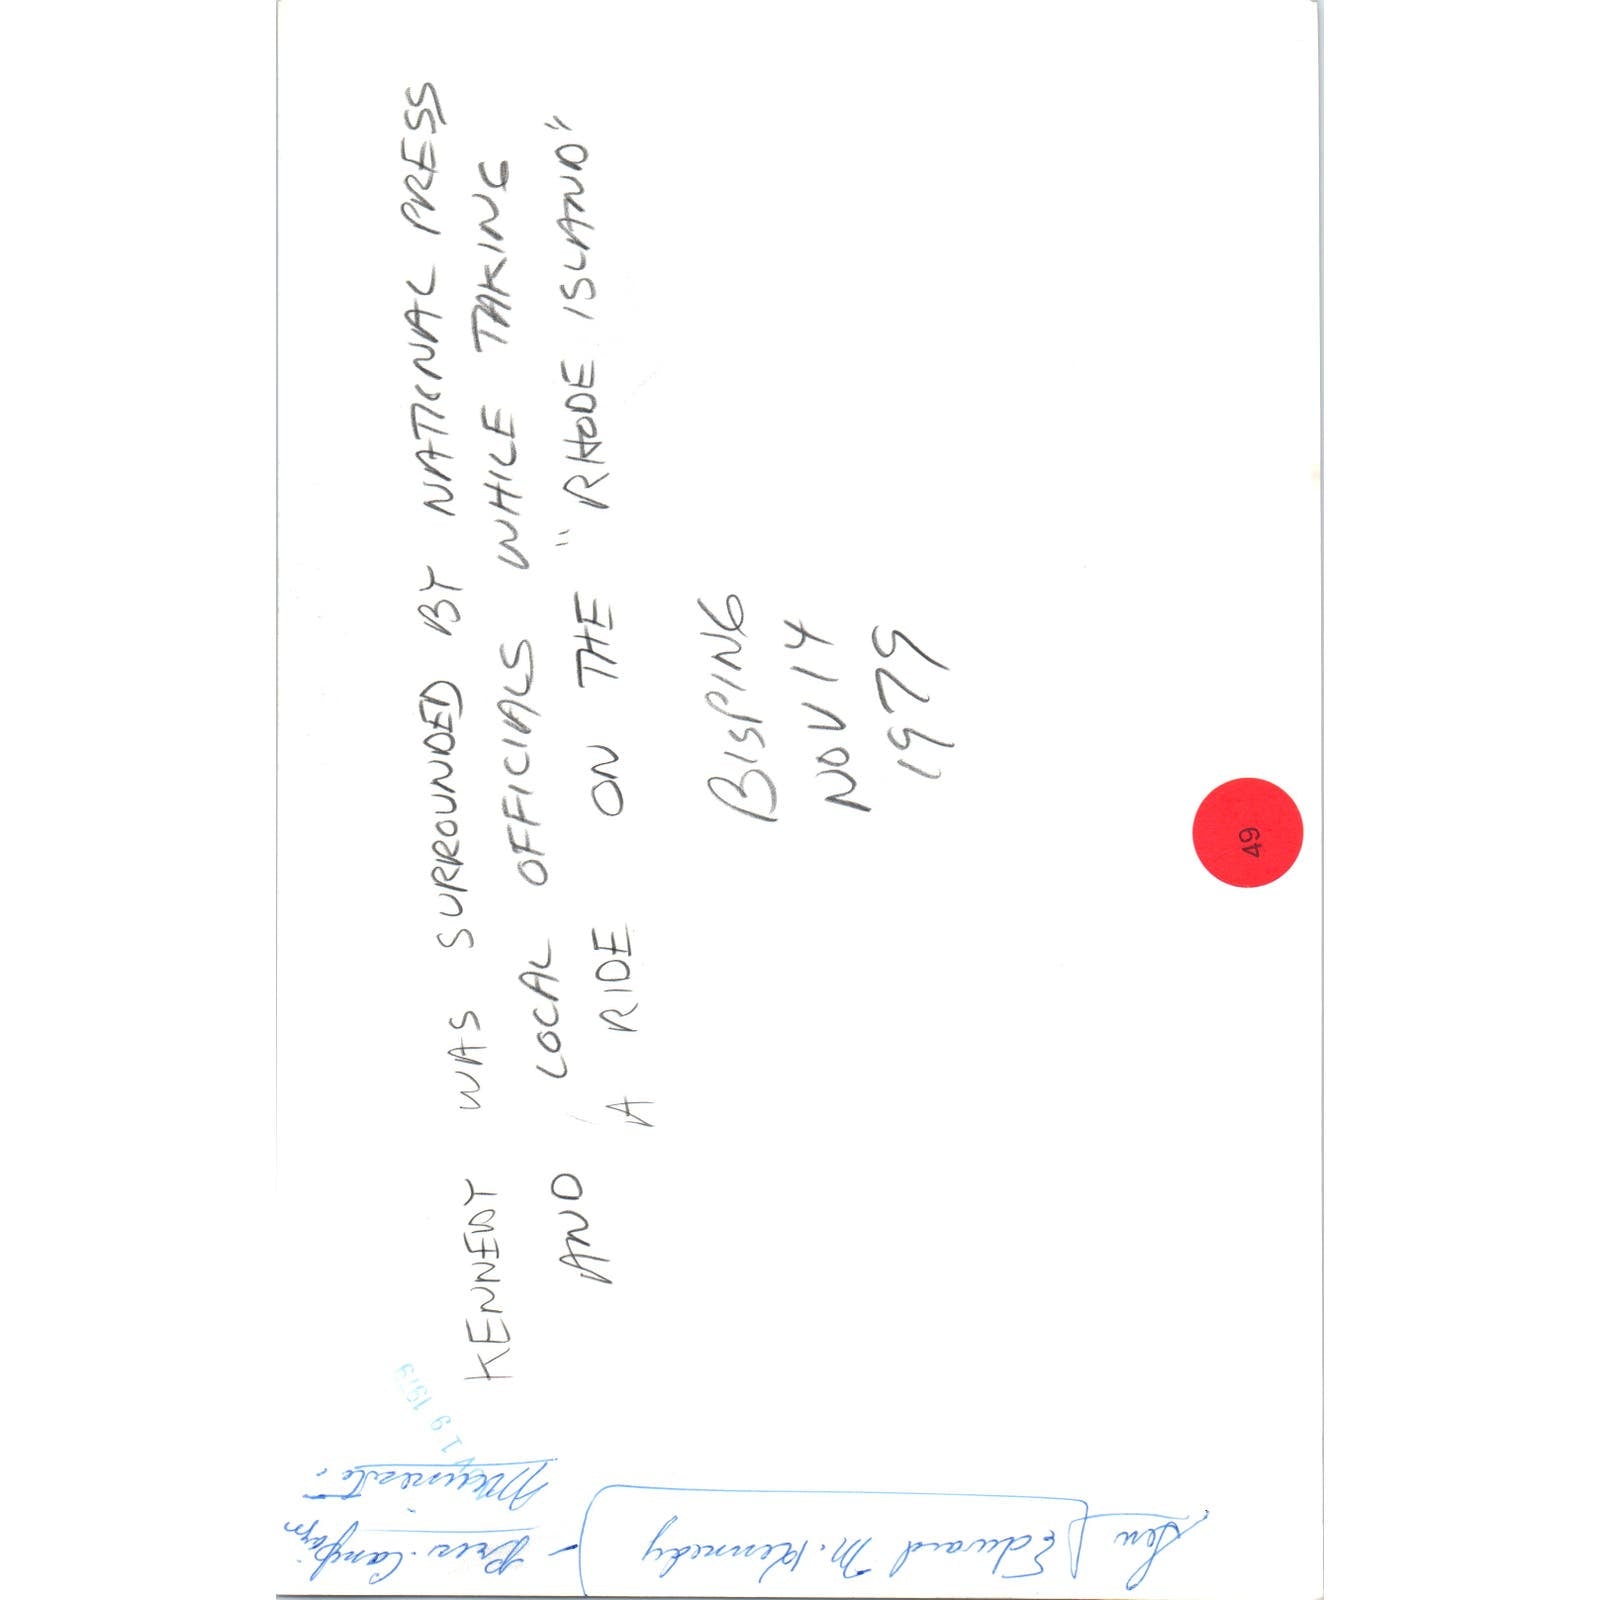 KENNEDY WAS SURROUNDED BY NATIONAL PRESS
AND LOCAL OFFICIALS WHILE TAKING
A RIDE ON THE "RHODE ISLAND"
BISPING
NOV 14
1979
49
Sen Edward M. Kennedy - Pres. Campaign
Minnesota
19 1979